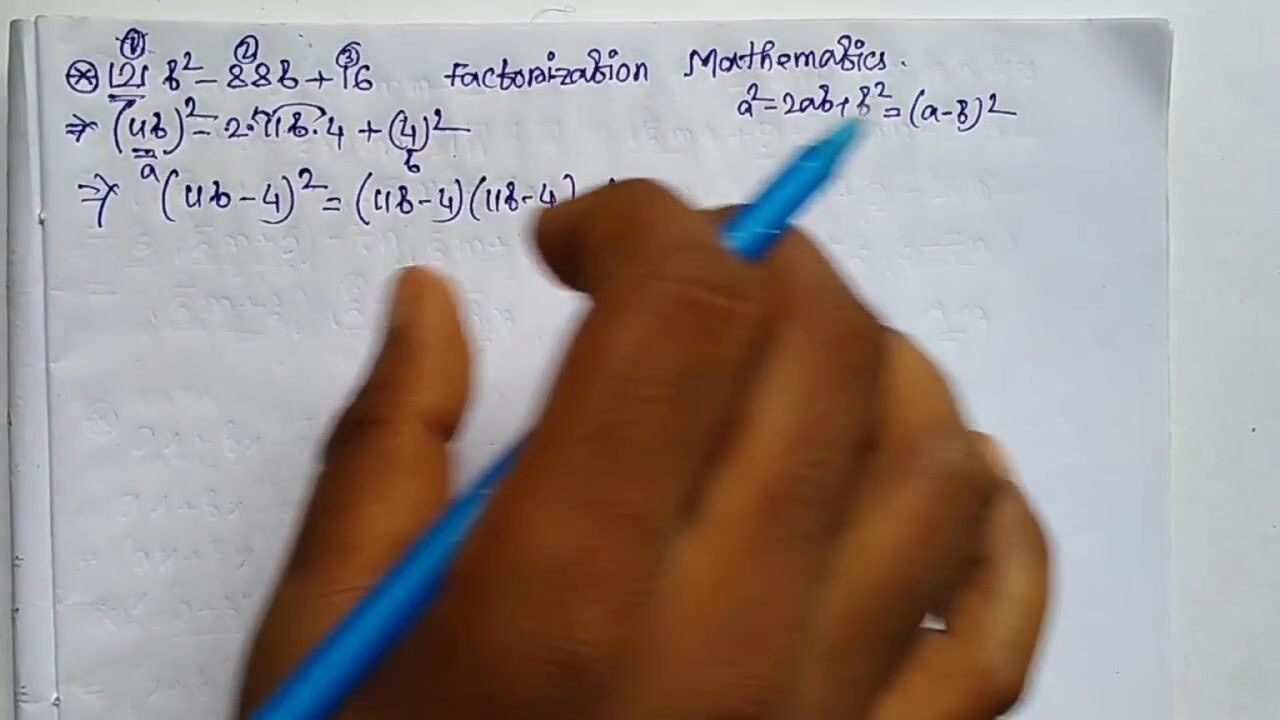 ① ② ③
⊛ 121 b² - 88b + 16 Factorization Mathematics.
a² - 2ab + b² = (a - b)²
⇒ (11b)² - 2·11b·4 + (4)²
a b
⇒ (11b - 4)² = (11b - 4)(11b - 4)